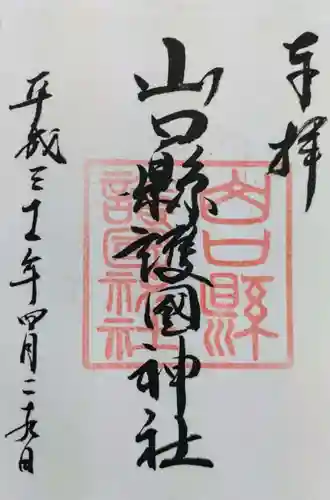 奉拝
山口縣護國神社
平成三十一年四月二十九日
山口縣
護国神社